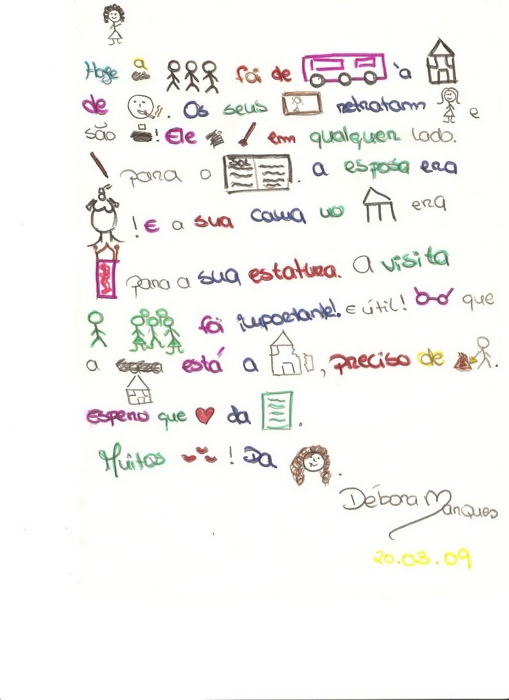 Hoje a foi de à
de . Os seus retratam e
são ! Ele em qualquer lado.
para o SOL . a esposa era
! E a sua cama no era
para a sua estatura. A visita
foi importante! E útil! que
a está a , preciso de .
espero que da .
Muitos ! Da .
Débora Marques
20.03.09